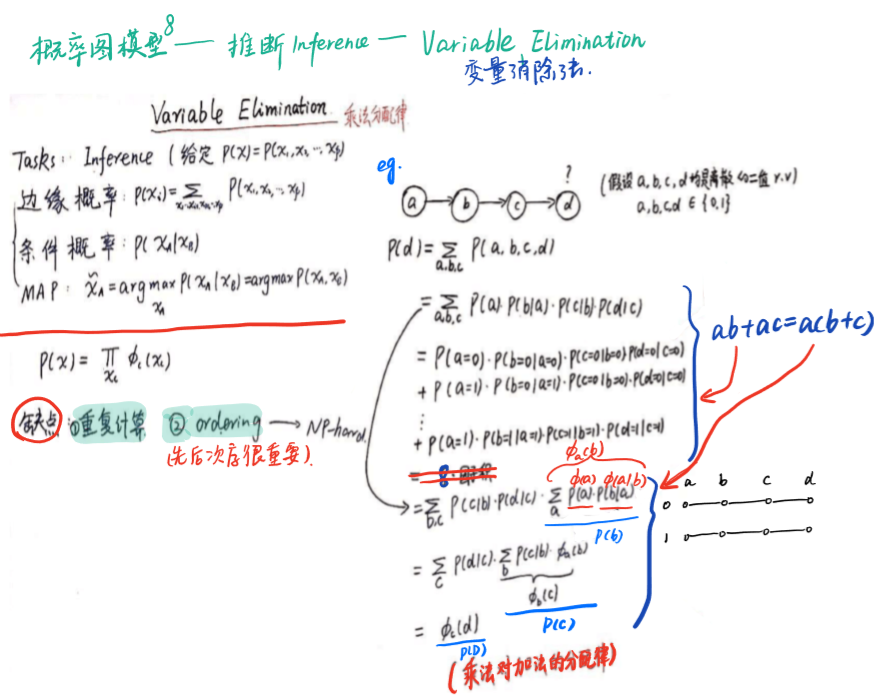 概率图模型⁸ — 推断 Inference — Variable Elimination
变量消除法.
Variable Elimination 乘法分配律
Tasks: Inference (给定 P(x)=P(x₁,x₂,…,xₚ)
边缘概率: P(xᵢ)=∑ P(x₁,x₂,…xₚ)
条件概率: P(x_A|x_B)
MAP: x̂_A=argmax P(x_A|x_B)=argmax P(x_A,x_B)
x_A
P(x) = ∏ ϕᵢ(xᵢ)
xᵢ
缺点 ①重复计算 ② ordering → NP-hard
(先后次序很重要).
eg.
?
a → b → c → d
(假设 a,b,c,d 均是离散的二值 r.v)
a,b,c,d ∈ {0,1}
P(d) = ∑ P(a,b,c,d)
a,b,c
= ∑ P(a)·P(b|a)·P(c|b)·P(d|c)
a,b,c
= P(a=0)·P(b=0|a=0)·P(c=0|b=0)·P(d=0|c=0)
+ P(a=1)·P(b=0|a=1)·P(c=0|b=0)·P(d=0|c=0)
⋮
+ P(a=1)·P(b=1|a=1)·P(c=1|b=1)·P(d=1|c=1)
ab+ac=a(b+c)
ϕₐ(b)
= 8
ϕ(a) ϕ(a|b)
= ∑ P(c|b)·P(d|c)·∑ P(a)·P(b|a)
b,c a
P(b)
= ∑ P(d|c)·∑ P(c|b)·ϕₐ(b)
c b
ϕ_b(c)
P(c)
= ϕ_c(d)
P(D)
(乘法对加法的分配律)
a b c d
0
1